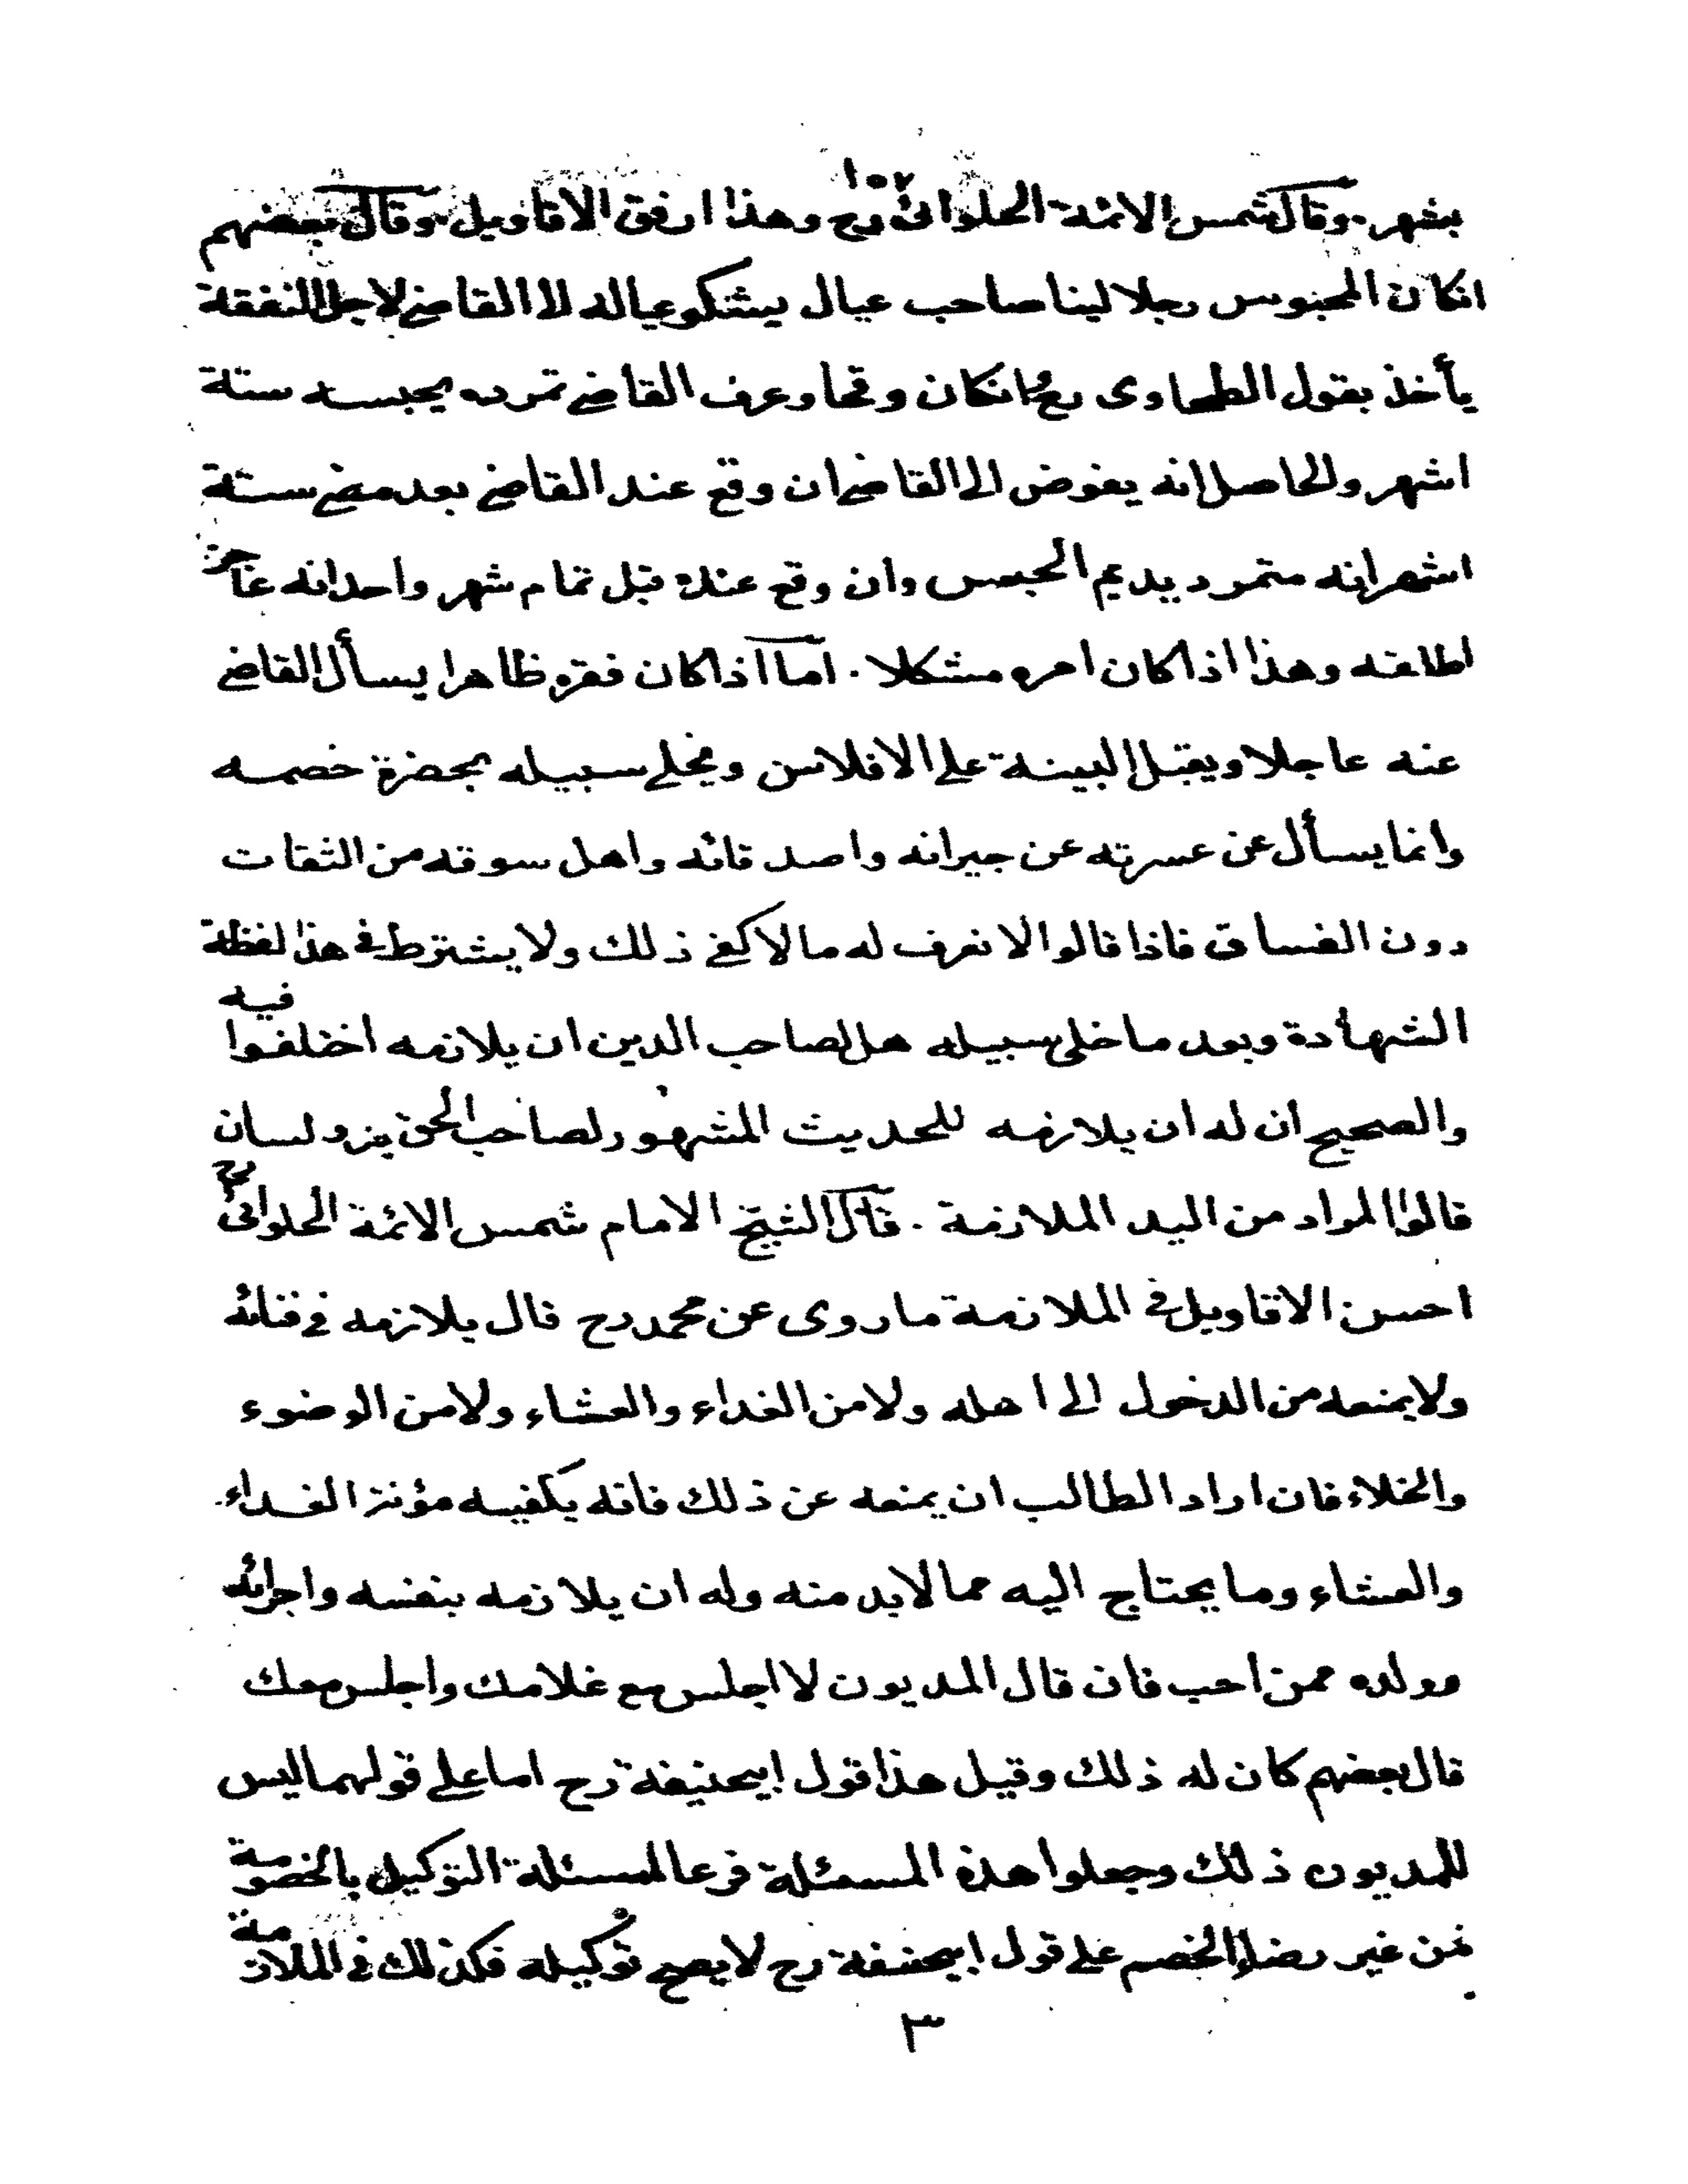 ١٠٢
بشهر. وقال شمس الائمة الحلوانى رح وهذا ارفق الاقاويل. وقال بعضهم
انكان المحبوس رجلا لينا صاحب عيال يشتكو عياله الا القاضى لاجل النفقة
يأخذ بقول الطحاوى رح وانكان وقحا وعرف القاضى تمرده يحبسه ستة
اشهر والحاصل انه يفوض الى القاضى ان وقع عند القاضى بعد مضى ستة
اشهر انه متمرد يديم الحبس وان وقع عنده قبل تمام شهر واحد انه عاجز
اطلقه وهذا اذا كان امره مشكلا. اما اذا كان فقره ظاهرا يسأل القاضى
عنه عاجلا ويقبل البينة على الافلاس ويخلى سبيله بحضرة خصمه
وانما يسأل عن عسرته عن جيرانه واصدقائه واهل سوقه من الثقات
دون الفساق فاذا قالوا لا نعرف له مالا كفى ذلك ولا يشترط فى هذا لفظة
الشهادة وبعد ما خلى سبيله هل لصاحب الدين ان يلازمه اختلفوا فيه
والصحيح ان له ان يلازمه للحديث المشهور لصاحب الحق يد ولسان
قالوا المراد من اليد الملازمة. قال الشيخ الامام شمس الائمة الحلوانى رح
احسن الاقاويل فى الملازمة ما روى عن محمد رح قال يلازمه فى فنائه
ولا يمنعه من الدخول الى اهله ولا من الغداء والعشاء ولا من الوضوء
والخلاء فان اراد الطالب ان يمنعه عن ذلك فانه يكفيه مؤنة الغداء
والعشاء وما يحتاج اليه مما لا بد منه وله ان يلازمه بنفسه واجرائه
وولده ممن احب فان قال المديون لا اجلس مع غلامك واجلس معك
قال بعضهم كان له ذلك وقيل هذا قول ابيحنيفة رح اما على قولهما ليس
للمديون ذلك وجعلوا هذه المسئلة فرعا لمسئلة التوكيل بالخصومة
من غير رضا الخصم على قول ابيحنيفة رح لا يصح توكيله فكذلك فى الملازمة
٣